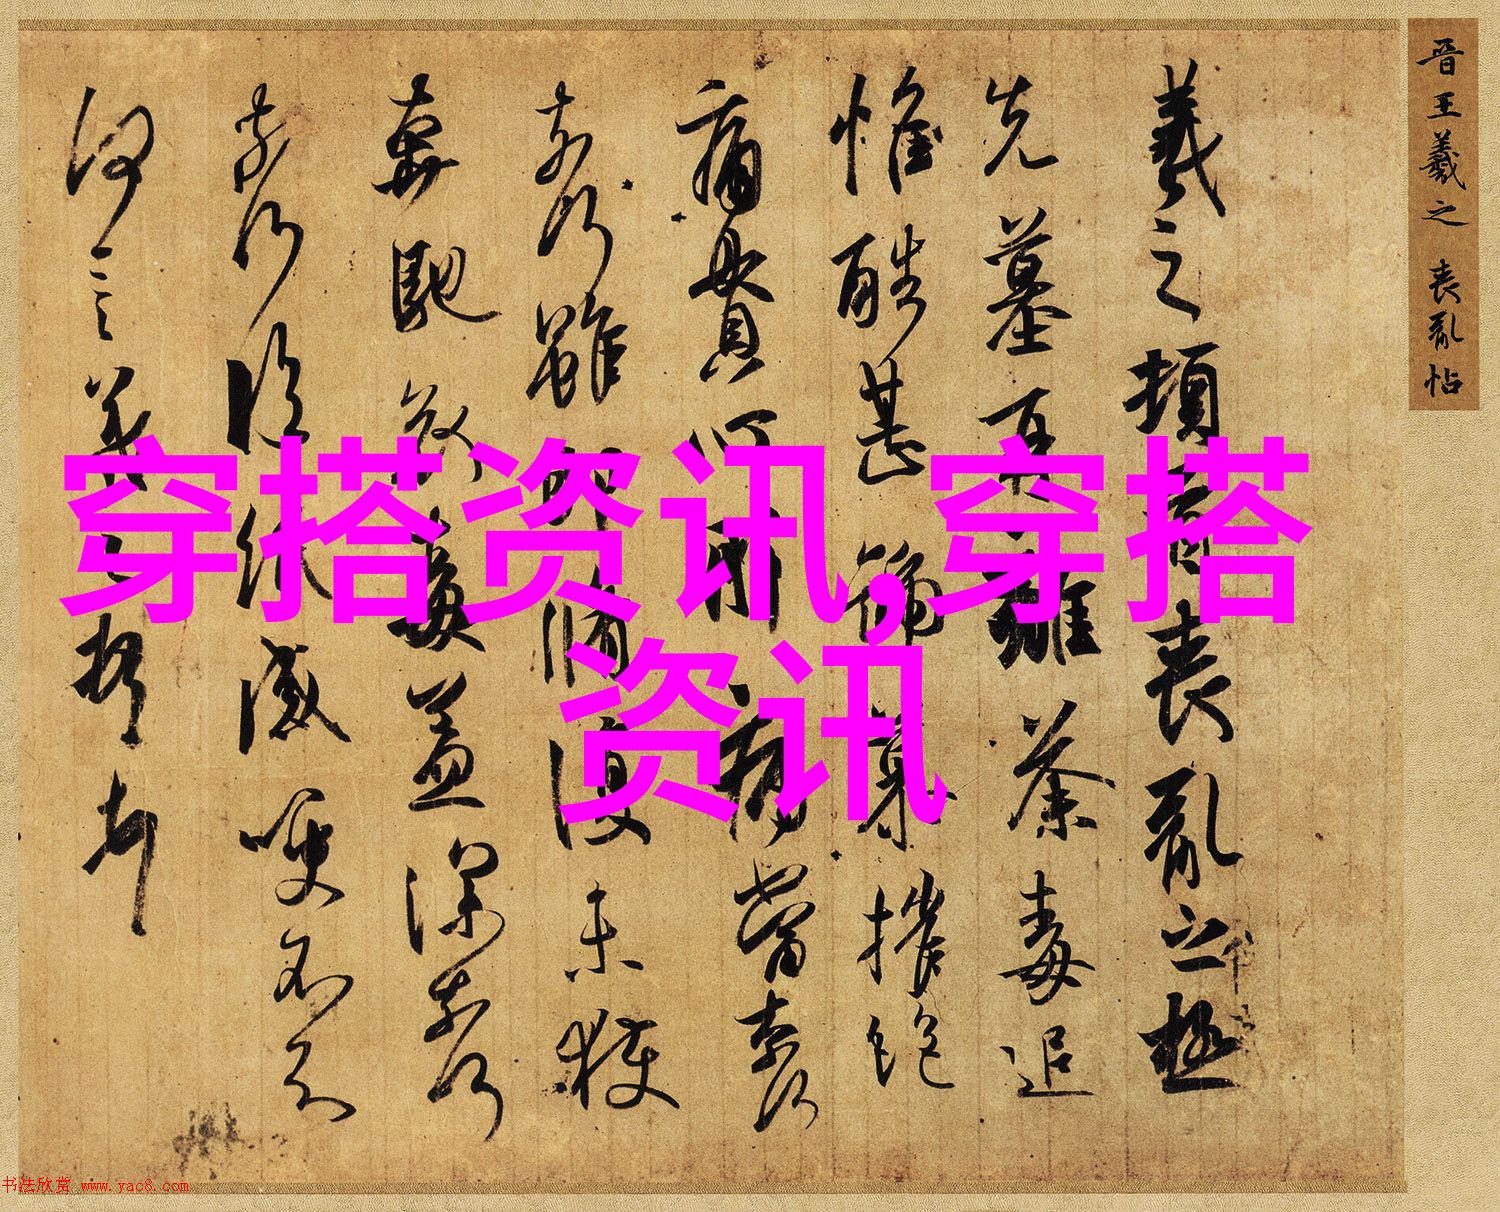 穿搭资讯,穿搭
资讯
晉王羲之 喪亂帖
羲之頓首喪亂之極
先墓再離荼毒追
惟酷甚號慕摧絕
痛貫心肝痛當奈何
奈何雖即脩復未獲
奔馳哀毒益深奈何
奈何臨紙感哽不知
何言羲之頓首頓首
书法欣赏 www.yac8.com